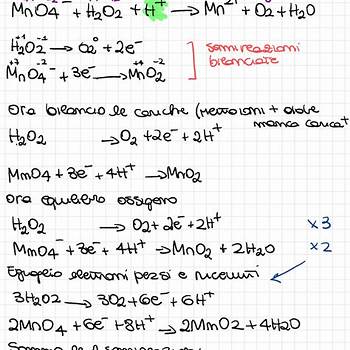 MnO4⁻ + H2O2 + H⁺ → Mn²⁺ + O2 + H2O
+1 -1 0
H2O2 → O2 + 2e⁻
semireazioni
bilanciate
+7 -2 +4 -2
MnO4⁻ + 3e⁻ → MnO2
Ora bilancio le cariche (metto ioni + dove
manca carica +
H2O2 → O2 + 2e⁻ + 2H⁺
MnO4 + 3e⁻ + 4H⁺ → MnO2
Ora equilibro ossigeno
H2O2 → O2 + 2e⁻ + 2H⁺ x3
MnO4⁻ + 3e⁻ + 4H⁺ → MnO2 + 2H2O x2
Eguaglio elettroni persi e ricevuti
3H2O2 → 3O2 + 6e⁻ + 6H⁺
2MnO4 + 6e⁻ + 8H⁺ → 2MnO2 + 4H2O